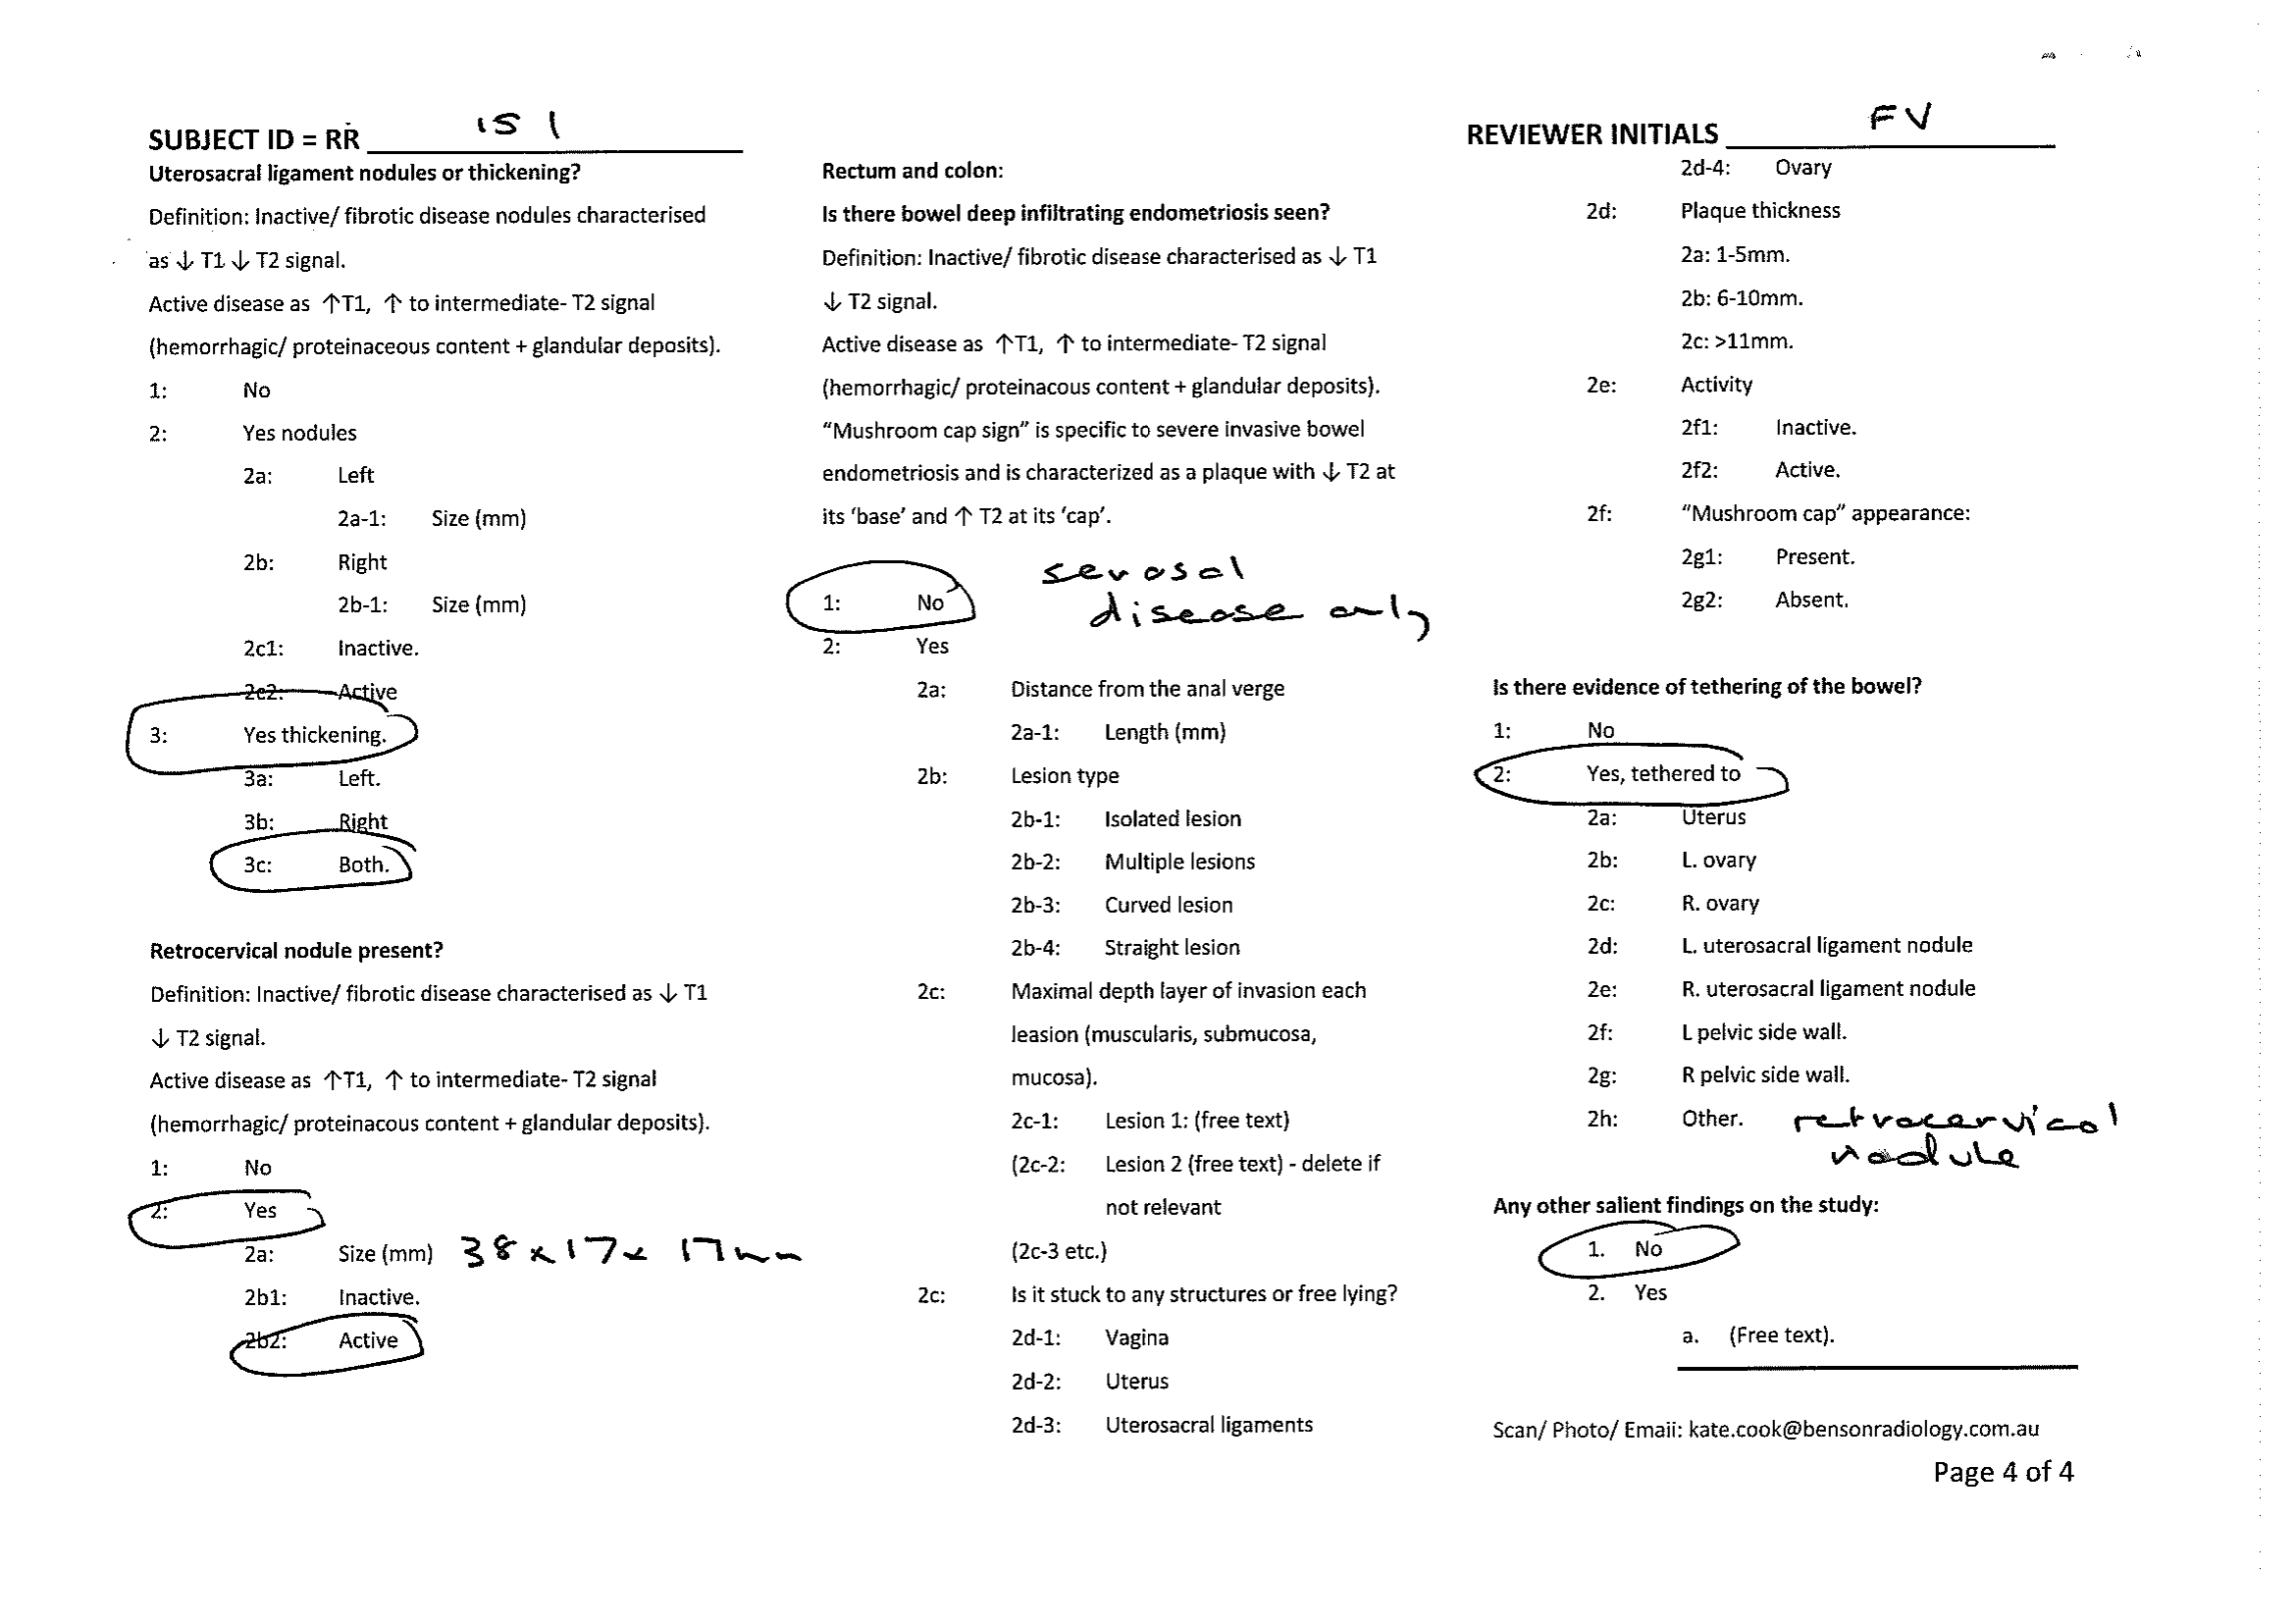 SUBJECT ID = RR 151
REVIEWER INITIALS FV
Uterosacral ligament nodules or thickening?
Definition: Inactive/ fibrotic disease nodules characterised
as ↓ T1 ↓ T2 signal.
Active disease as ↑T1, ↑ to intermediate- T2 signal
(hemorrhagic/ proteinaceous content + glandular deposits).
1: No
2: Yes nodules
2a: Left
2a-1: Size (mm)
2b: Right
2b-1: Size (mm)
2c1: Inactive.
2c2: Active
3: Yes thickening.
3a: Left.
3b: Right
3c: Both.
Retrocervical nodule present?
Definition: Inactive/ fibrotic disease characterised as ↓ T1
↓ T2 signal.
Active disease as ↑T1, ↑ to intermediate- T2 signal
(hemorrhagic/ proteinacous content + glandular deposits).
1: No
2: Yes
2a: Size (mm) 38 x 17 x 17mm
2b1: Inactive.
2b2: Active
Rectum and colon:
Is there bowel deep infiltrating endometriosis seen?
Definition: Inactive/ fibrotic disease characterised as ↓ T1
↓ T2 signal.
Active disease as ↑T1, ↑ to intermediate- T2 signal
(hemorrhagic/ proteinacous content + glandular deposits).
“Mushroom cap sign” is specific to severe invasive bowel
endometriosis and is characterized as a plaque with ↓ T2 at
its ‘base’ and ↑ T2 at its ‘cap’.
serosal
1: No disease only
2: Yes
2a: Distance from the anal verge
2a-1: Length (mm)
2b: Lesion type
2b-1: Isolated lesion
2b-2: Multiple lesions
2b-3: Curved lesion
2b-4: Straight lesion
2c: Maximal depth layer of invasion each
leasion (muscularis, submucosa,
mucosa).
2c-1: Lesion 1: (free text)
(2c-2: Lesion 2 (free text) - delete if
not relevant
(2c-3 etc.)
2c: Is it stuck to any structures or free lying?
2d-1: Vagina
2d-2: Uterus
2d-3: Uterosacral ligaments
2d-4: Ovary
2d: Plaque thickness
2a: 1-5mm.
2b: 6-10mm.
2c: >11mm.
2e: Activity
2f1: Inactive.
2f2: Active.
2f: “Mushroom cap” appearance:
2g1: Present.
2g2: Absent.
Is there evidence of tethering of the bowel?
1: No
2: Yes, tethered to
2a: Uterus
2b: L. ovary
2c: R. ovary
2d: L. uterosacral ligament nodule
2e: R. uterosacral ligament nodule
2f: L pelvic side wall.
2g: R pelvic side wall.
2h: Other. retrocervical
nodule
Any other salient findings on the study:
1. No
2. Yes
a. (Free text).
Scan/ Photo/ Email: kate.cook@bensonradiology.com.au
Page 4 of 4